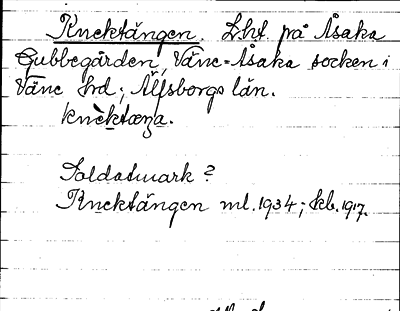 Knektängen. Lht. på Åsaka
Gubbegården,Väne-Åsaka socken i
Väne hd; Älfsborgs län.
knèktæŋa.
Soldatmark?
Knektängen ml. 1934; kb. 1917.